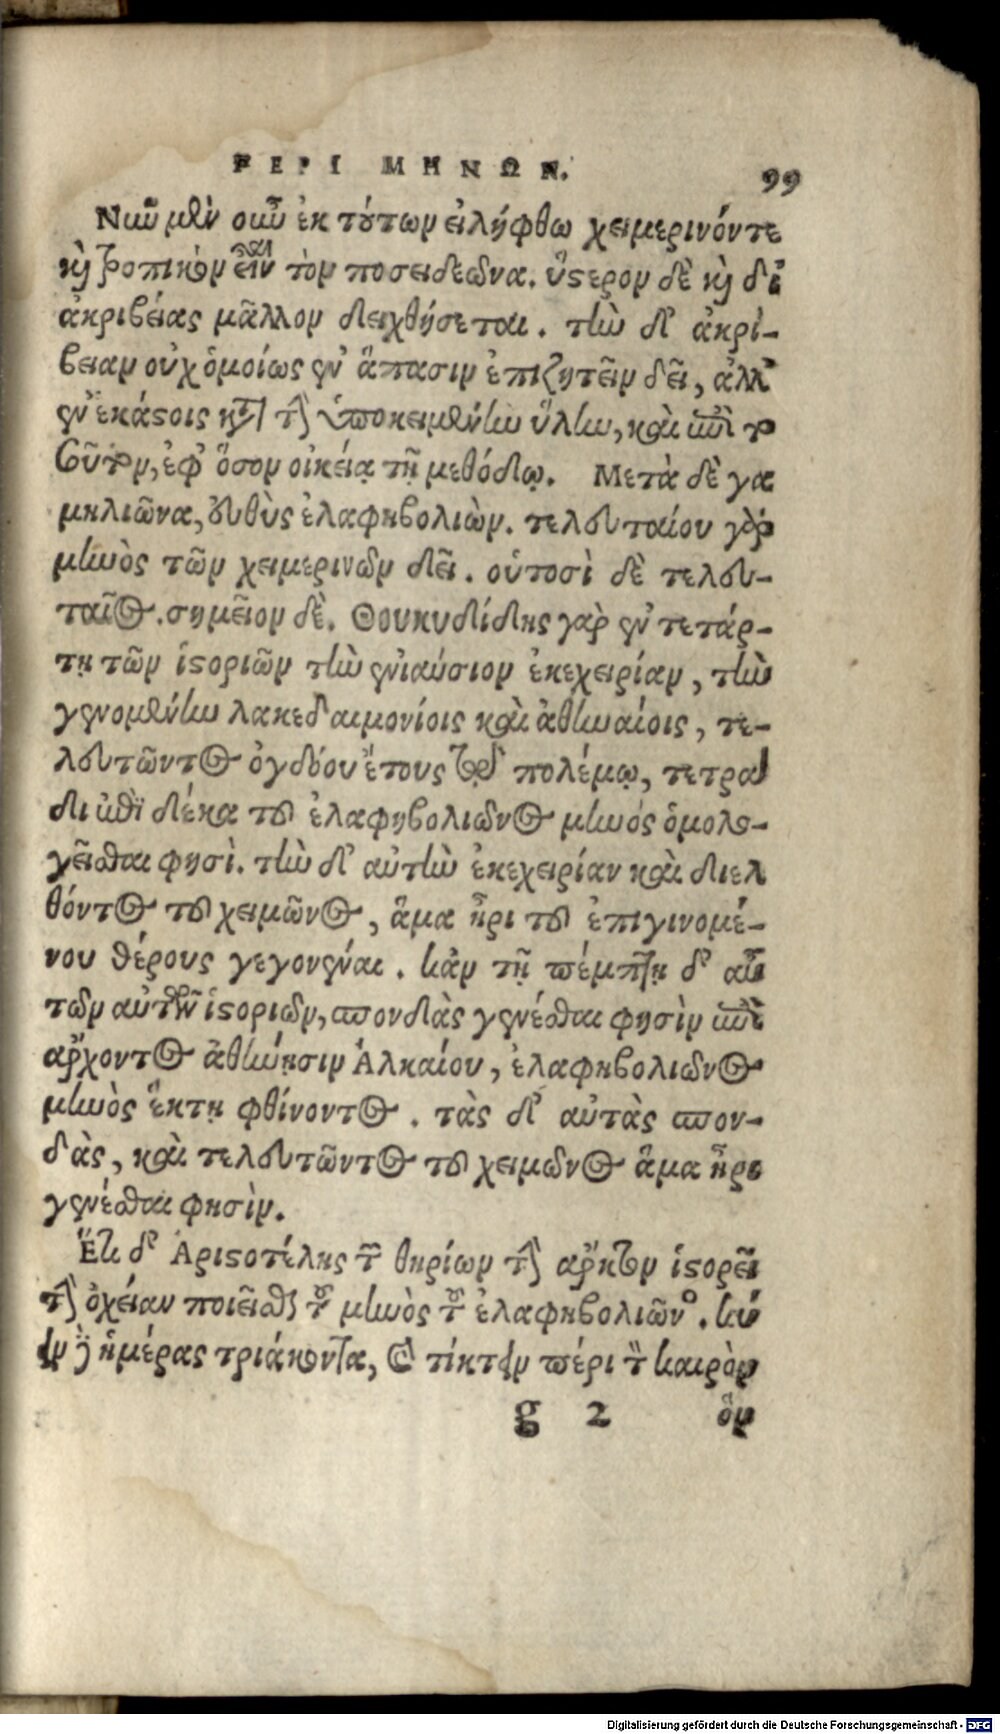 ΠΕΡΙ ΜΗΝΩΝ. 99
Νῦν μὲν οὖν ἐκ τούτων εἰλήφθω χειμερινόν τε
καὶ τροπικὸν εἶναι τὸν ποσειδεῶνα. ὕστερον δὲ καὶ δι
ἀκριβείας μᾶλλον δειχθήσεται. τὴν δ' ἀκρί-
βειαν οὐχ ὁμοίως ἐν ἅπασιν ἐπιζητεῖν δεῖ, ἀλλ'
ἐν ἑκάστοις κατὰ τὴν ὑποκειμένην ὕλην, καὶ ἐπὶ το
σοῦτον, ἐφ' ὅσον οἰκεία τῇ μεθόδῳ. Μετὰ δὲ γα
μηλιῶνα, εὐθὺς ἐλαφηβολιὼν. τελευταίου γὰρ
μηνὸς τῶν χειμερινῶν δεῖ. οὑτοσὶ δὲ τελευ-
ταῖος. σημεῖον δὲ. Θουκυδίδης γὰρ ἐν τετάρ-
τῃ τῶν ἱστοριῶν τὴν ἐνιαύσιον ἐκεχειρίαν, τὴν
γενομένην λακεδαιμονίοις καὶ ἀθηναίοις, τε-
λευτῶντος ὀγδόου ἔτους τῷδε πολέμῳ, τετρα
δι ἐπὶ δέκα τοῦ ἐλαφηβολιῶνος μηνός ὁμολο-
γεῖσθαι φησὶ. τὴν δ' αὐτὴν ἐκεχειρίαν καὶ διελ
θόντος τοῦ χειμῶνος, ἅμα ἦρι τοῦ ἐπιγινομέ-
νου θέρους γεγονέναι. κἀν τῇ πέμπτῃ δ' αὖ
τῶν αὐτῶν ἱστοριῶν, σπονδὰς γενέσθαι φησὶν ἐπὶ
ἄρχοντος ἀθήνῃσιν Ἀλκαίου, ἐλαφηβολιῶνος
μηνὸς ἕκτῃ φθίνοντος. τὰς δ' αὐτὰς σπον-
δὰς, καὶ τελευτῶντος τοῦ χειμῶνος ἅμα ἦρι
γενέσθαι φησὶν.
Ἔτι δ' Ἀριστοτέλης τῶν θηρίων τὴν ἄρκτον ἱστορεῖ
τὴν ὀχείαν ποιεῖσθαι τοῦ μηνὸς τοῦ ἐλαφηβολιῶνος. κύ
ειν δὲ ἡμέρας τριάκοντα, καὶ τίκτειν περὶ τὸν καιρὸν
g 2 ὃν
Digitalisierung gefördert durch die Deutsche Forschungsgemeinschaft - DFG